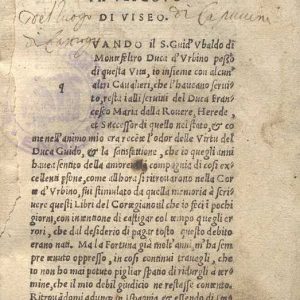 DI VISEO.
VANDO il S. Guid' Vbaldo di
Montefeltro Duca d'Vrbino passò
di questa Vita, io insieme con alcun'
altri Caualieri, che l'haueano serui
to, resta i alli seruitii del Duca Fran
cesco Maria dalla Rouere, Herede
et Successor di quello nel stato, & co
me nell'animo mio era recẽte l'odor delle Virtu del
Duca Guido, & la satisfattione, che io quegli anni
hauea sentito della amoreuole compagnia di cosi ex
cellenti psone, come allhora si ritrouarono nella Cor
te d'Vrbino, fui stimulato da quella memoria à scri
uere questi Libri del Coregiano: il che io feci i pochi
giorni, con intentione di castigar col tempo quegli er
rori, che dal desiderio di pagar tosto questo debito
erano nati. Ma la Fortuna già molt' anni, m'ha sem
pre tenuto oppresso, in cosi continui trauagli, che
io non ho mai potuto pigliar spatio di ridurgli a ter
mine, che il mio debil giudicio ne restasse contento.
Ritrouãdomi adunq; in Hispania, & essendo di